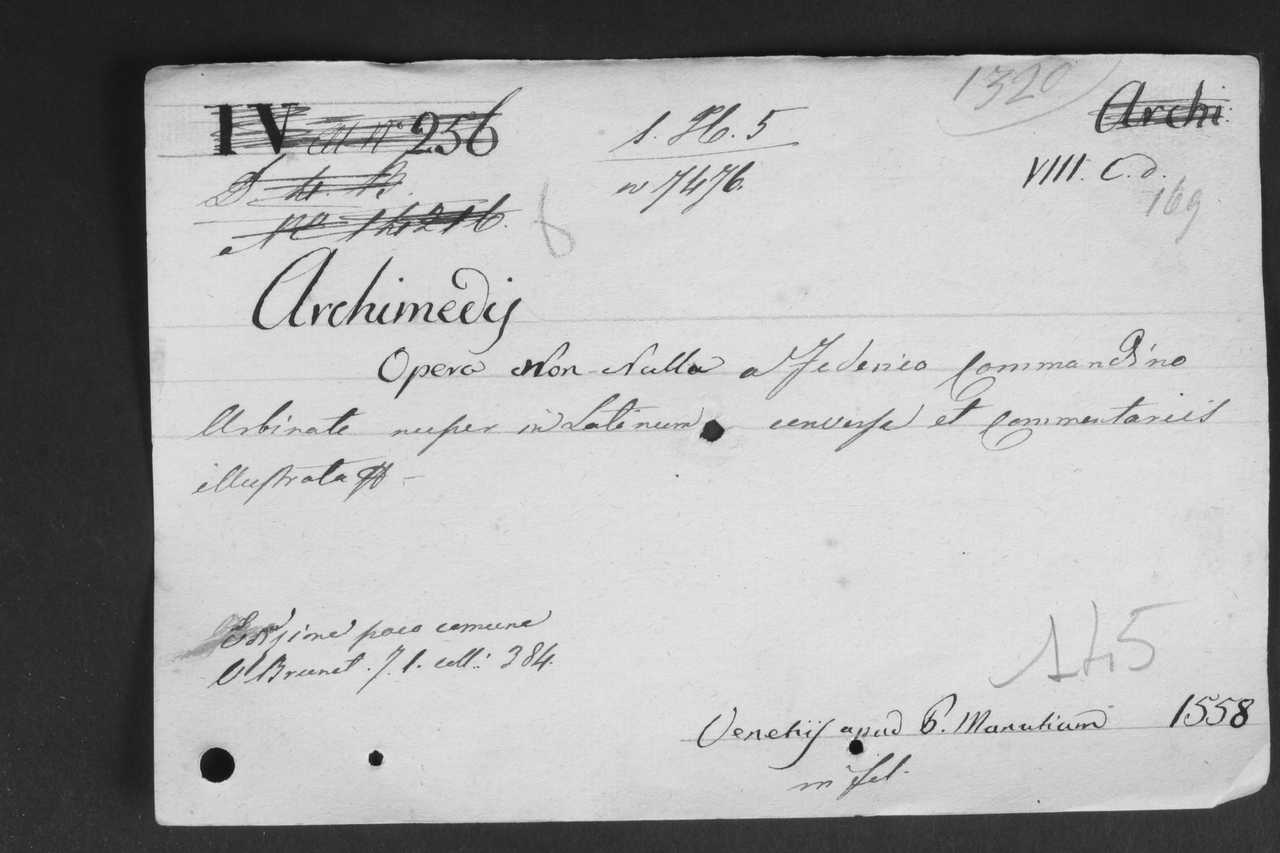 IV 256
1320
Archi
1. H. 5
VIII. C. d.
n 7476.
169
No 14216.
Archimedis
Opera Non Nulla a Federico Commandino
Urbinate nuper in Latinum conversa et Commentariis
illustrata
Edizione poco comune
V Brunet. T. 1. coll: 384.
145
Venetijs apud P. Manutium 1558
in fol.